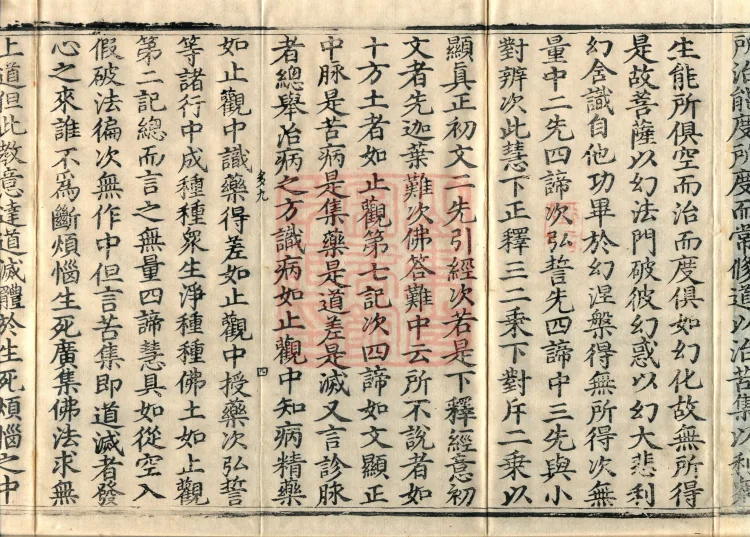 所治能度所度而常修道以治苦集以利
生能所俱空而治而度俱如幻化故無所得
是故菩薩以幻法門破彼幻惑以幻大悲利
幻含識自他功畢於幻涅槃得無所得次無
量中二先四諦次弘誓先四諦中三先與小
對辨次此慧下正釋三二乘下對斥二乘以
顯真正初文二先引經次若是下釋經意初
文者先迦葉難次佛答難中云所不說者如
十方土者如止觀第七記次四諦如文顯正
中脉是苦病是集藥是道差是滅又言診脉
者總舉治病之方識病如止觀中知病精藥
亥九
四
如止觀中識藥得差如止觀中授藥次弘誓
等諸行中成種種衆生淨種種佛土如止觀
第二記總而言之無量四諦慧具如從空入
假破法徧次無作中但言苦集即道滅者發
心之來誰不爲斷煩惱生死廣集佛法求無
上道但此教意達道滅體於生死煩惱之中